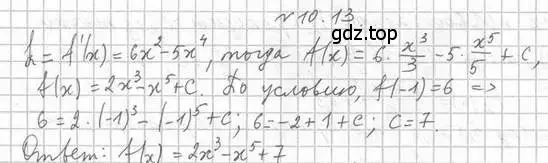 №10.13.
k = f'(x) = 6x² - 5x⁴, тогда f(x) = 6 · x³/3 - 5 · x⁵/5 + C,
f(x) = 2x³ - x⁵ + C. По условию, f(-1) = 6 =>
6 = 2 · (-1)³ - (-1)⁵ + C; 6 = -2 + 1 + C; C = 7.
Ответ: f(x) = 2x³ - x⁵ + 7